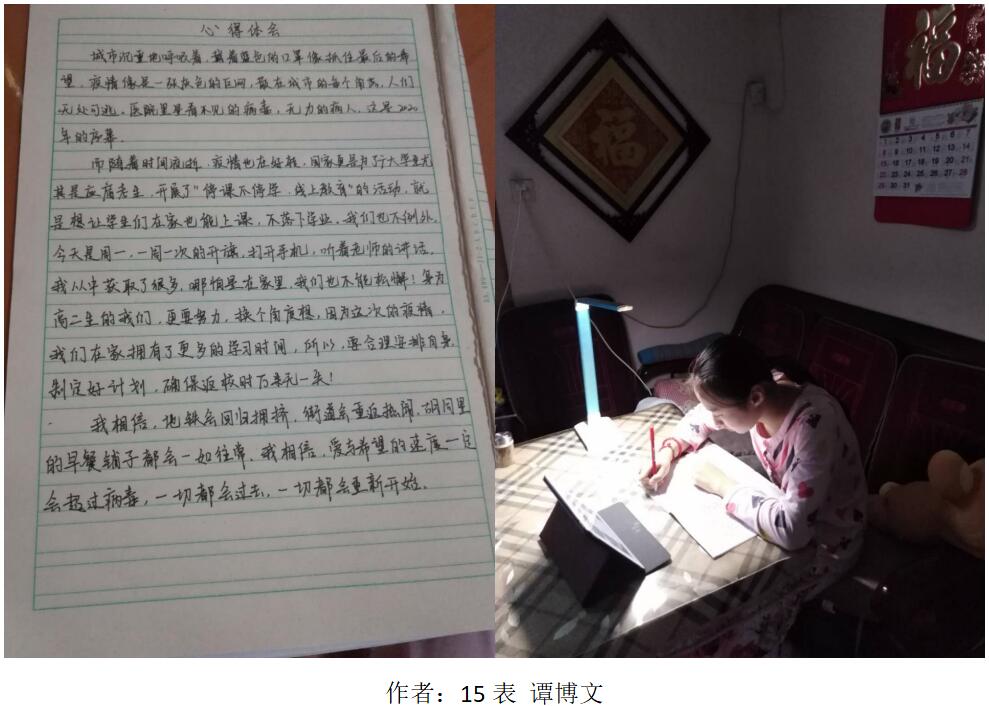 心得体会
城市沉重地呼吸着，戴着蓝色的口罩像抓住最后的希
望，疫情像是一张灰色的巨网，散在城市的每个角落，人们
无处可逃。医院里是看不见的病毒，无力的病人，这是2020
年的序幕。
而随着时间的推移，疫情也在好转，国家真是为了大学生尤
其是应届考生，开展了“停课不停学，线上教育”的活动，就
是想让学生们在家也能上课，不落下学业。我们也不例外。
今天是周一，一周一次的升旗，打开手机，听着老师的讲话，
我从中获取了很多，哪怕是在家里，我们也不能松懈！身为
高二生的我们，更要努力，换个角度想，因为这次的疫情，
我们在家拥有了更多的学习时间，所以，要合理安排自身
制定好计划，确保返校时万无一失！
我相信，地铁会回归拥挤，街道会重返热闹，胡同里
的早餐铺子都会一如往常，我相信，爱与希望的速度一定
会超过病毒，一切都会过去，一切都会重新开始。
福
福
作者：15表 谭博文